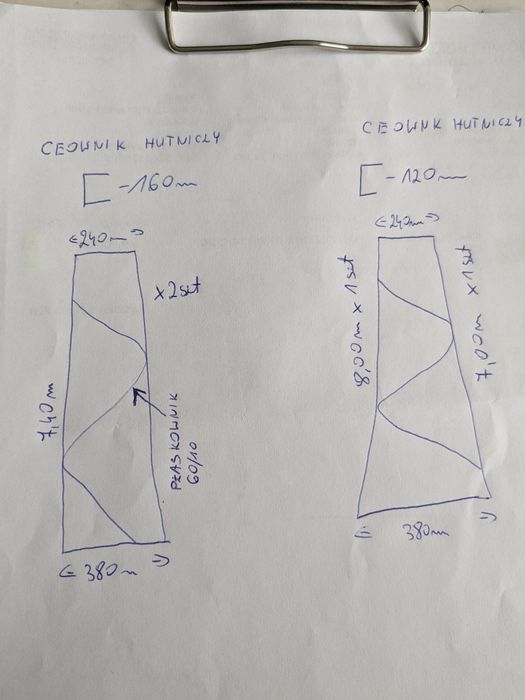 CEOWNIK HUTNICZY
[ -160m
←240m→
x 2szt
7,40m
PŁASKOWNIK
60/10
← 380m →
CEOWNIK HUTNICZY
[ -120m
←240m→
8,00m x 1szt
7,00m x 1szt
← 380m →